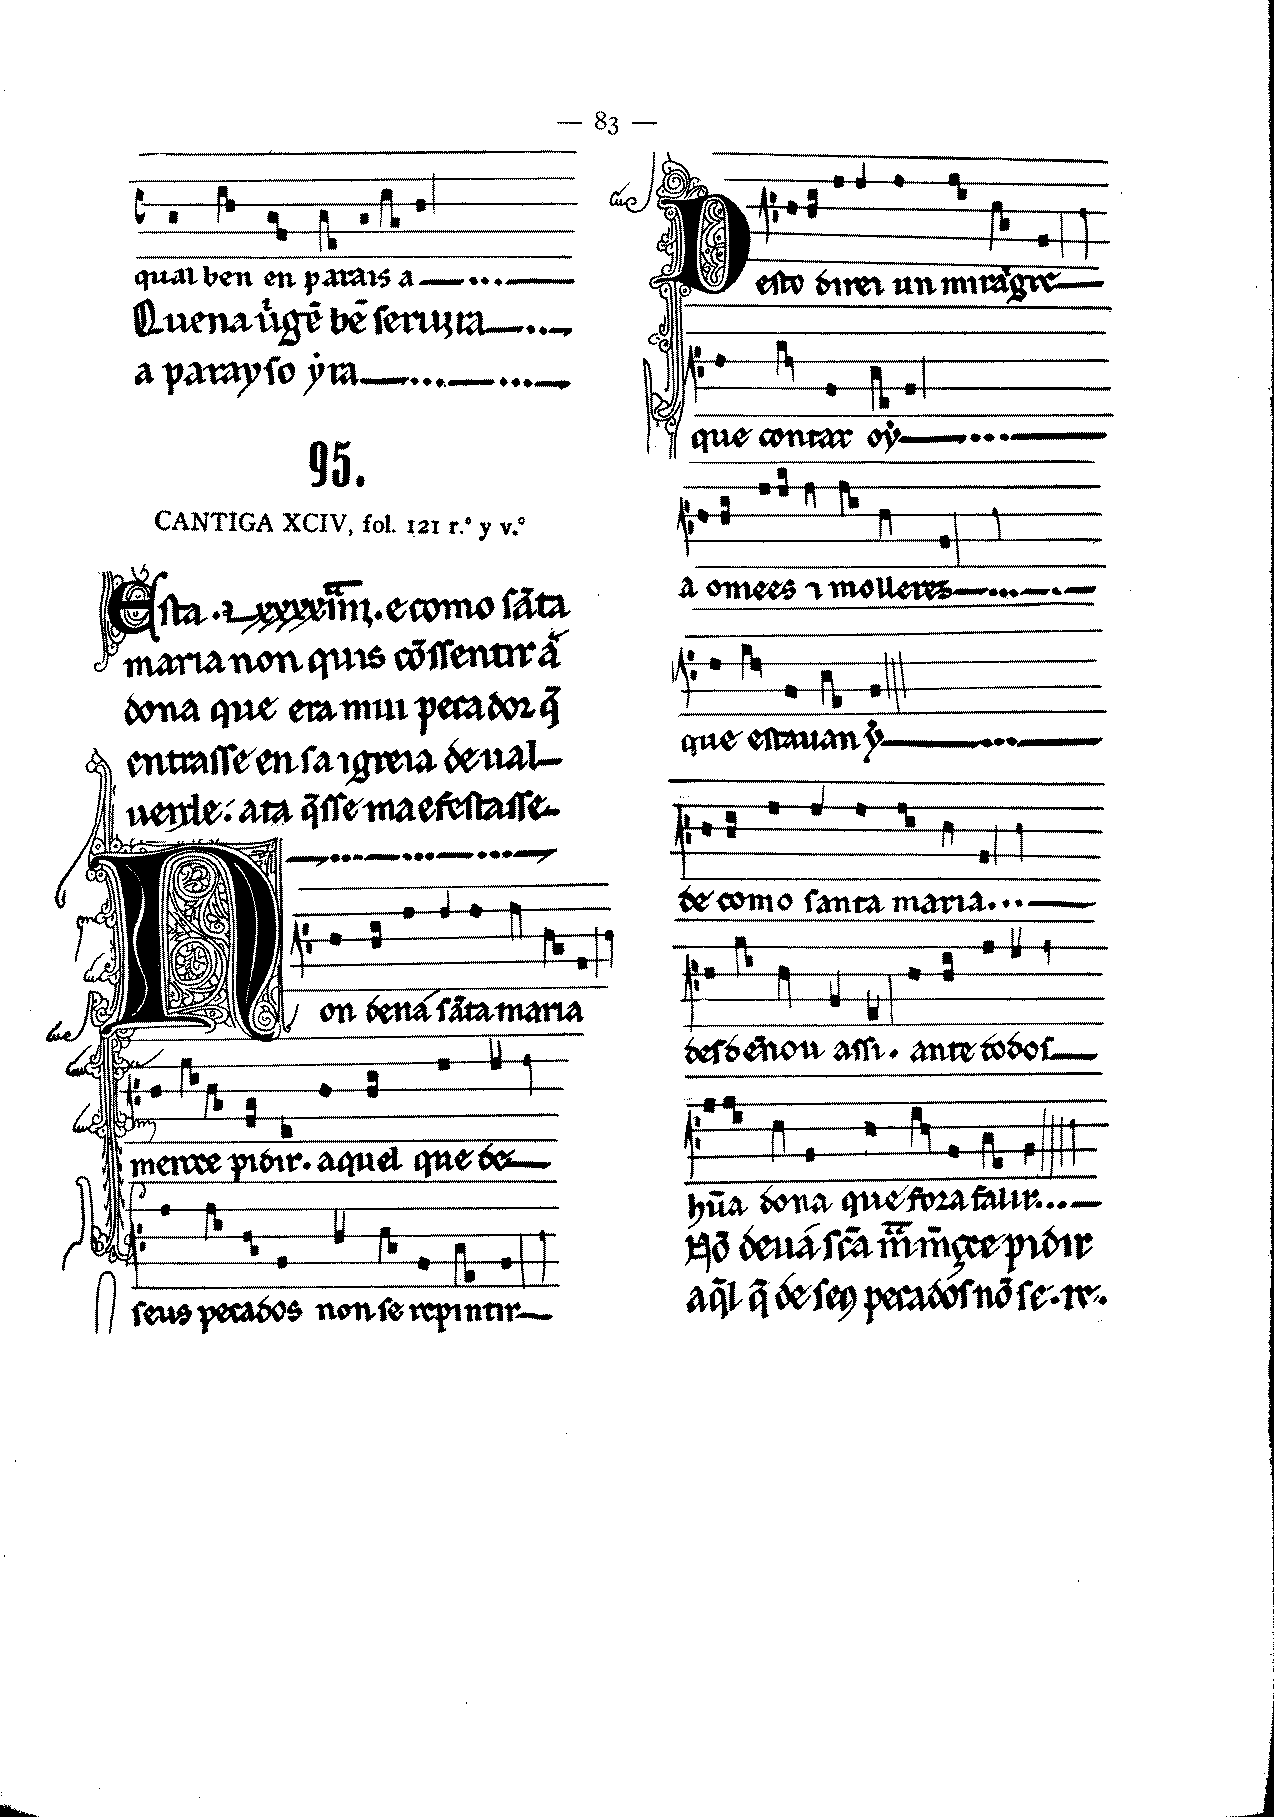 — 83 —
qual ben en parais a
Quena uĩgẽ bẽ seruira
a parayso yra
95.
CANTIGA XCIV, fol. 121 r.º y v.º
Esta . e como sãta
maria non quis cõssentir á
dona que era mui pecador q̃
entrasse en sa igreia de ual
uerde: ata q̃sse maefestasse
Non deuá sãta maria
merçee pidir. aquel que de
seus pecados non se repintir
Desto direi un miragre
que contar oý
a omees ⁊ molleres
que estauan ý
de como santa maria
desdennou assi. ante todos
hũa dona que fora falir.
Nõ deuá sc̃a m̃a m̃çee pidir
aq̃l q̃ de seꝯ pecados nõ se. re.